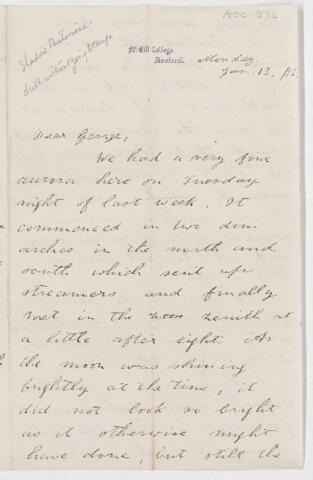 ACC-976
McGill College,
Montreal.
Monday
Jan. 13. /86.
Dear George,
We had a very fine
aurora here on Tuesday
night of last week. It
commenced in two dim
arches in the north and
south which sent up
streamers and finally
met in the zenith at
a little after eight. As
the moon was shining
brightly at the time, it
did not look so bright
as it otherwise might
have done, but still the